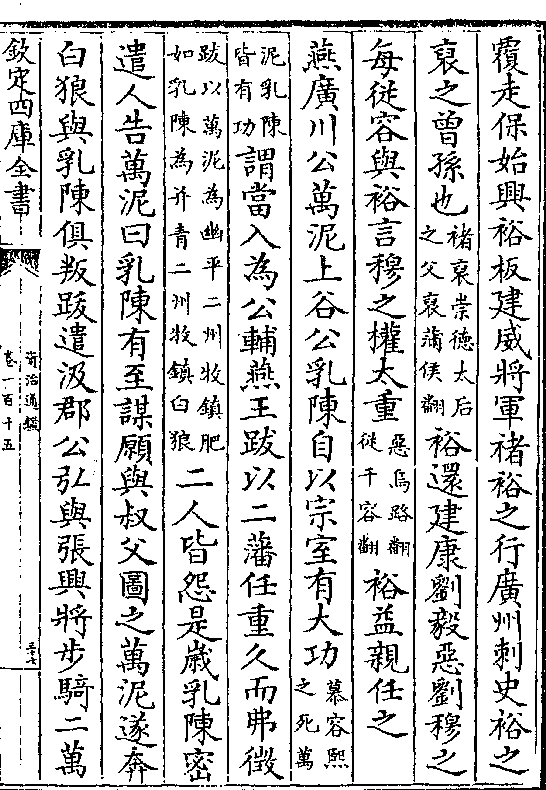 覆走保始興裕板建威將軍褚裕之行廣州刺史裕之
裒之曾孫也褚裒崇德太后之父裒蒲侯翻裕還建康劉毅惡劉穆之
每從容與裕言穆之權太重惡烏路翻從千容翻裕益親任之
燕廣川公萬泥上谷公乳陳自以宗室有大功慕容熙之死萬
泥乳陳皆有功謂當入為公輔燕王跋以二藩任重久而弗徵
跋以萬泥為幽平二州牧鎮肥如乳陳為并青二州牧鎮白狼二人皆怨是歲乳陳密
遣人告萬泥曰乳陳有至謀願與叔父圖之萬泥遂奔
白狼與乳陳俱叛跋遣汲郡公弘與張興將步騎二萬
欽定四庫全書
資治通鑑
卷一百十五
三十七